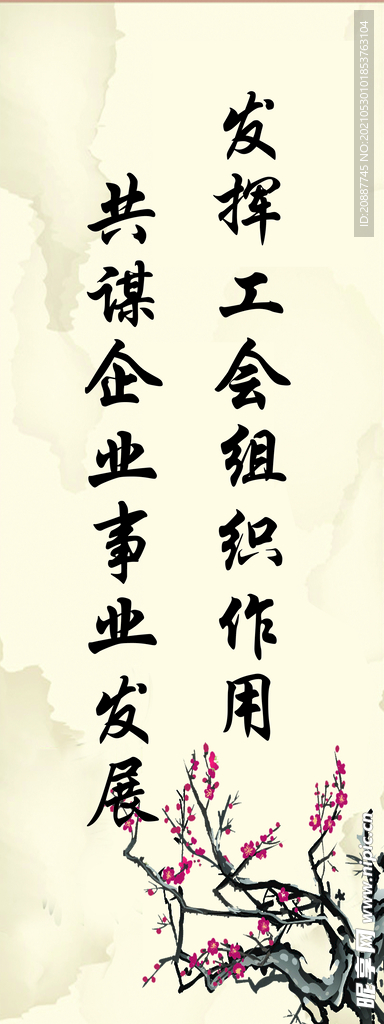 发挥工会组织作用
共谋企业事业发展
ID:20887745 NO:20210530101853763104
昵享网 www.nipic.cn